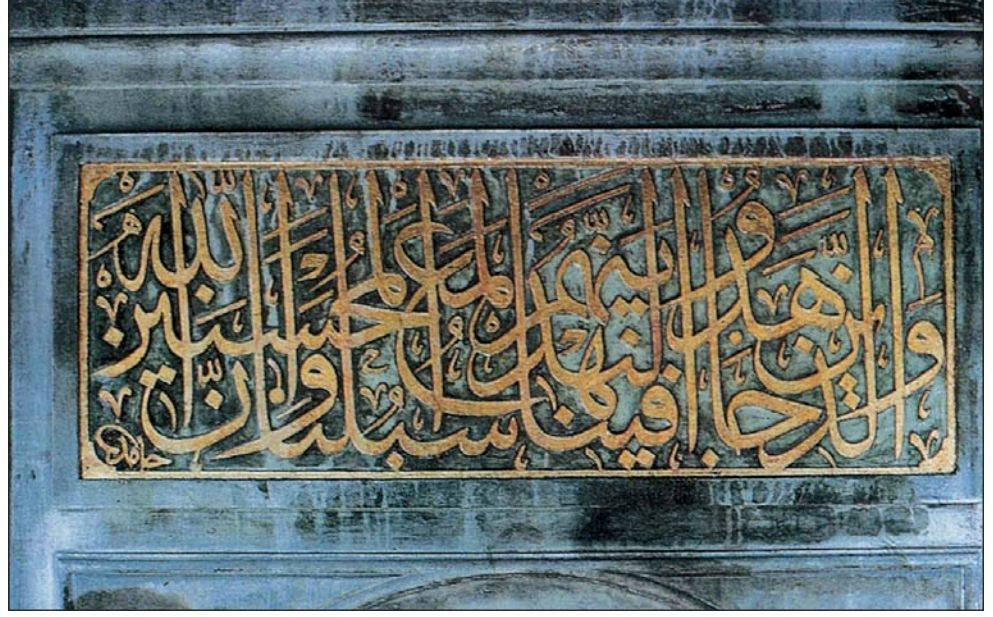 والذين جاهدوا فينا لنهدينهم سبلنا وإن الله لمع المحسنين
حامد